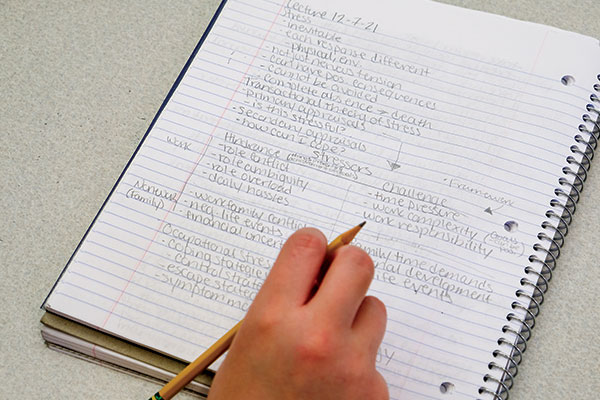 Lecture 12-7-21
Stress
- inevitable
- each response different
physical, env.
- not just nervous tension
- can have pos. consequences
- cannot be avoided
- complete absence → death
Transactional theory of stress
- primary appraisals
- is this stressful?
- secondary appraisals
- how can I cope?
Stressors
- Framework
Work
Hindrance
challenge
- role conflict
- time pressure
- role ambiguity
- work complexity
- role overload
- work responsibility
- daily hassles
Nonwork (family)
- work family conflict
family time demands
- neg. life events
development
- financial uncer
life events
Occupational Stres
- coping strategies
- control strat
- escape strate
- symptom ma